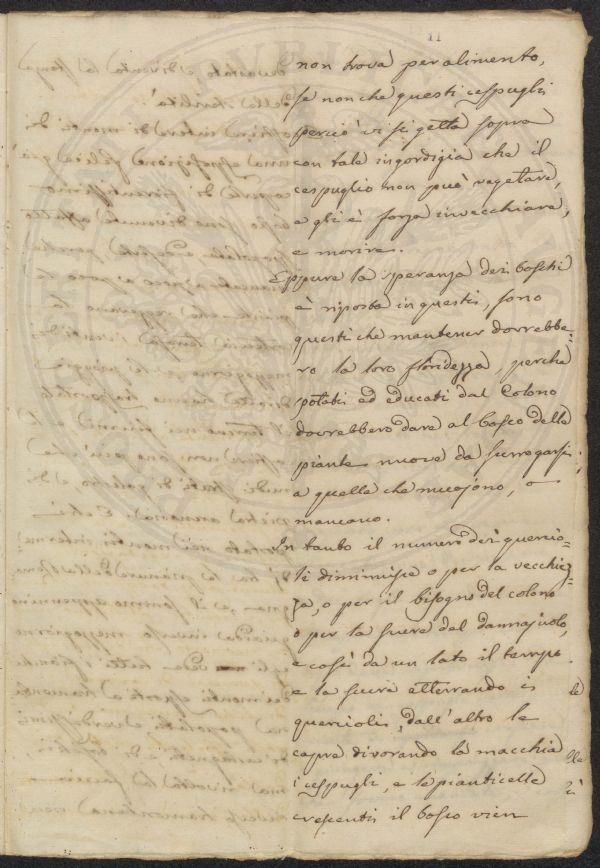 11
non trova per alimento,
se non che questi cespugli
perciò vi si getta sopra
con tale ingordigia che il
cespuglio non può vegetare,
e gli è forza invecchiare,
e morire.
Eppure la speranza dei boschi
è riposta in questi, sono
questi che mantener dovrebbe=
ro la loro floridezza, perchè
potati ed educati dal Colono
dovrebbero dare al bosco delle
piante nuove da surrogarsi
a quelle che muojono, o
mancano.
In tanto il numero dei quercio=
li diminuisce o per la vecchiez=
za, o per il bisogno del colono
o per la scure del dannajuolo,
e così da un lato il tempo
e la scure atterrando i
quercioli, dall'altro le
capre divorando la macchia
i cespugli, e le pianticelle
crescenti il bosco vien